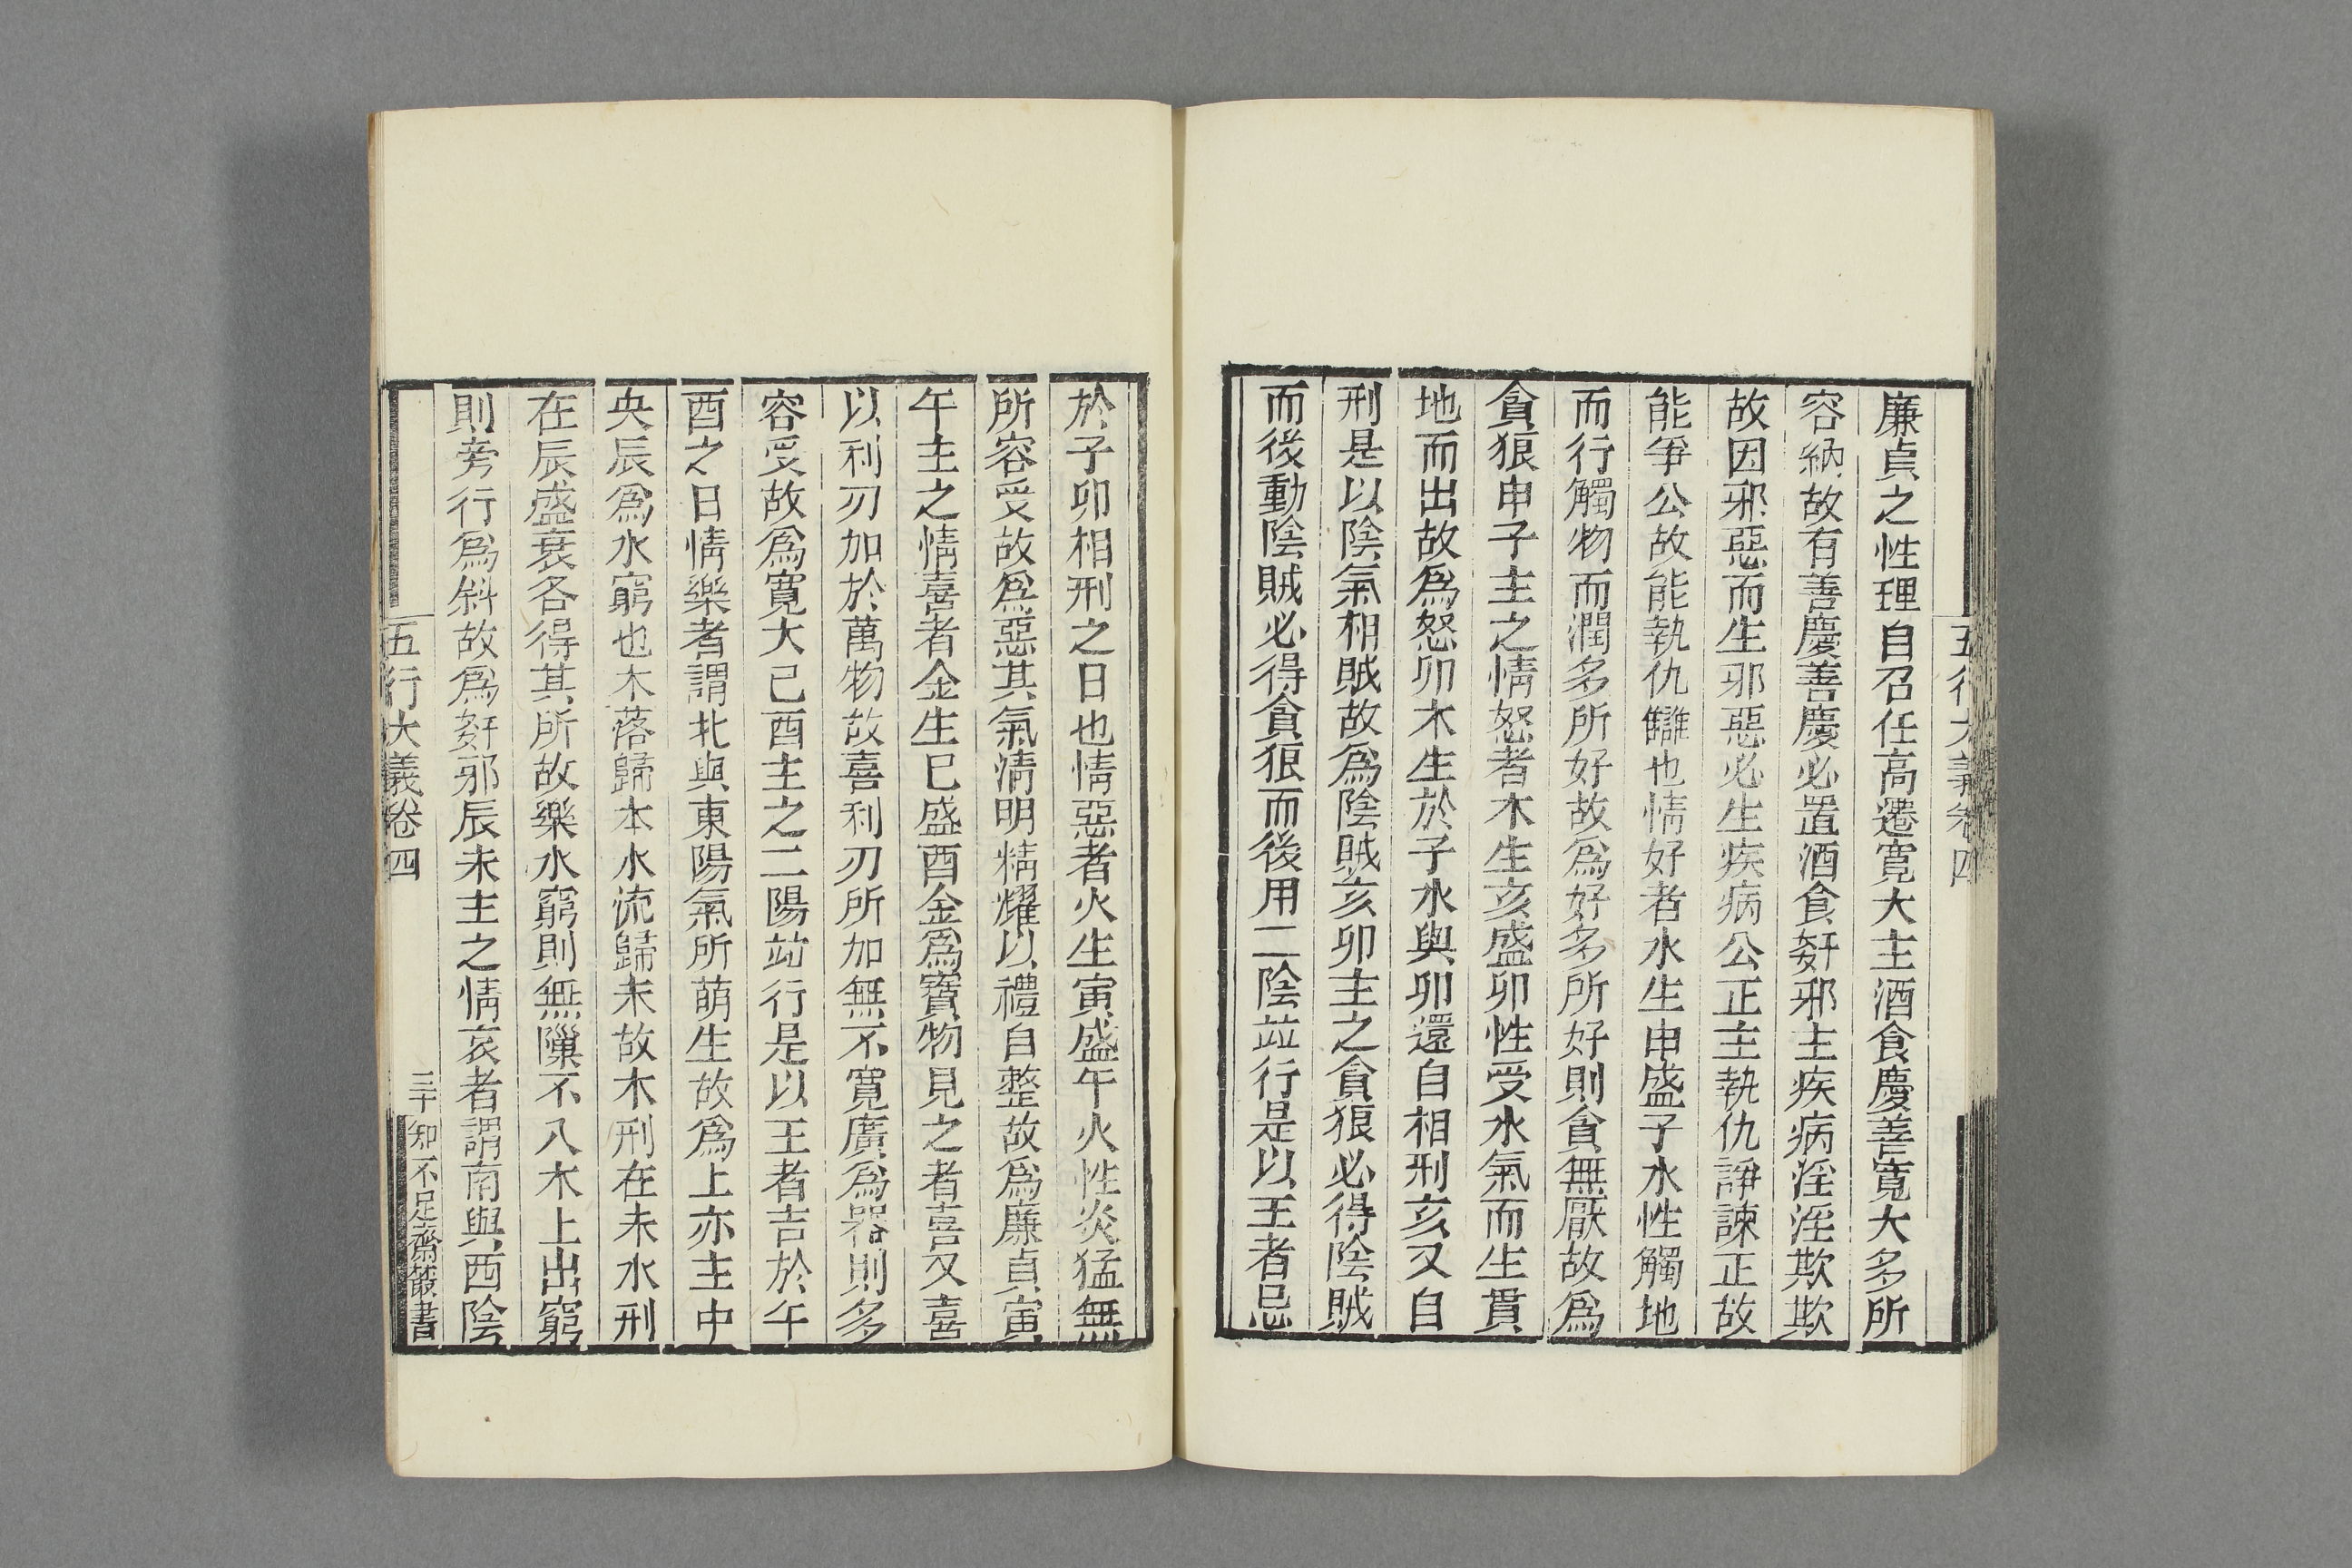 廉貞之性理自召任高遷寛大主酒食慶善寛大多所
容納故有善慶善慶必置酒食姧邪主疾病淫淫欺欺
故因邪惡而生邪惡必生疾病公正主執仇諍諫正故
能爭公故能執仇讎也情好者水生申盛子水性觸地
而行觸物而潤多所好故爲好多所好則貪無厭故爲
貪狼申子主之情怒者木生亥盛卯性受水氣而生貫
地而出故爲怒卯木生於子水與卯還自相刑亥又自
刑是以陰氣相賊故爲陰賊亥卯主之貪狼必得陰賊
而後動陰賊必得貪狼而後用二陰竝行是以王者忌
於子卯相刑之日也情惡者火生寅盛午火性炎猛無
所容受故爲惡其氣清明精耀以禮自整故爲廉貞寅
午主之情喜者金生巳盛酉金爲寶物見之者喜又喜
以利刃加於萬物故喜利刃所加無不寬廣爲器則多
容受故爲寬大己酉主之二陽竝行是以王者吉於午
酉之日情樂者謂北與東陽氣所萌生故爲上亦主中
央辰爲水窮也木落歸本水流歸未故木刑在未水刑
在辰盛衰各得其所故樂水窮則無隟不入木上出窮
則旁行爲斜故爲姧邪辰未主之情哀者謂南與西陰
五行大義卷四
三十
知不足齋叢書